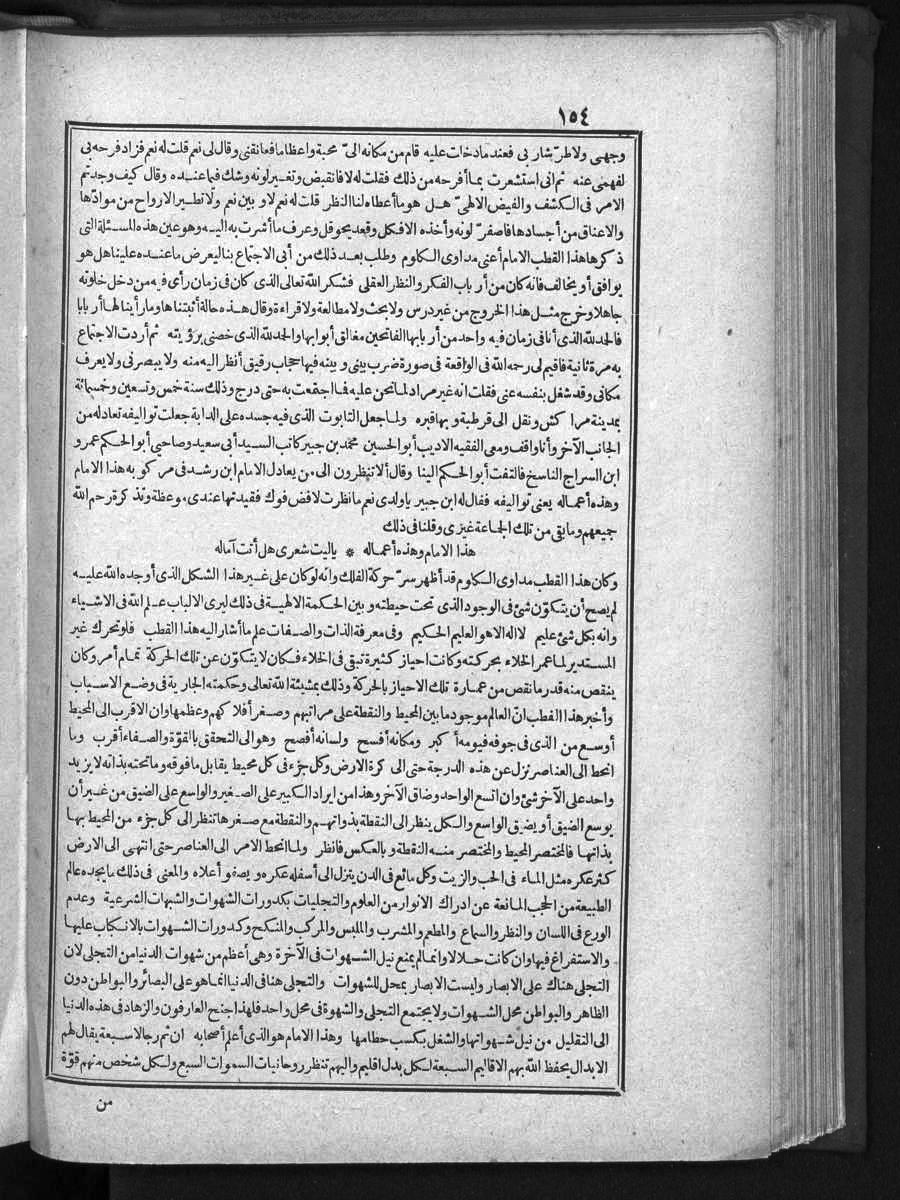 ١٥٤
وجهى ولا طرّ شاربى فعندما دخلت عليه قام من مكانه الىّ محبة واعظاما فعانقنى وقال لى نعم قلت له نعم فزاد فرحه بى
لفهمى عنه ثم انى استشعرت بما أفرحه من ذلك فقلت له لا فانقبض وتغير لونه وشك فيما عنده وقال كيف وجدتم
الامر فى الكشف والفيض الالهىّ هل هو ما أعطاه لنا النظر قلت له نعم لا وبين نعم ولا تطير الارواح من موادّها
والاعناق من أجسادها فاصفرّ لونه وأخذه الافكل وقعد يحوقل وعرف ما أشرت به اليه وهو عين هذه المسئلة التى
ذكرها هذا القطب الامام أعنى مداوى الكلوم وطلب بعد ذلك من أبى الاجتماع بنا ليعرض ما عنده علينا هل هو
يوافق أو يخالف فانه كان من أرباب الفكر والنظر العقلى فشكر الله تعالى الذى كان فى زمان رأى فيه من دخل خلوته
جاهلا وخرج مثل هذا الخروج من غير درس ولا بحث ولا مطالعة ولا قراءة وقال هذه حالة أثبتناها وما رأينا لها أربابا
فالحمد لله الذى أنا فى زمان فيه واحد من أربابها الفاتحين مغالق أبوابها والحمد لله الذى خصنى برؤيته ثم أردت الاجتماع
به مرة ثانية فاقيم لى رحمه الله فى الواقعة فى صورة ضرب بينى وبينه فيها حجاب رقيق أنظر اليه منه ولا يبصرنى ولا يعرف
مكانى وقد شغل بنفسه عنى فقلت انه غير مراد لما نحن عليه فما اجتمعت به حتى درج وذلك سنة خمس وتسعين وخمسمائة
بمدينة مراكش ونقل الى قرطبة وبها قبره ولما جعل التابوت الذى فيه جسده على الدابة جعلت تواليفه تعادله من
الجانب الآخر وأنا واقف ومعى الفقيه الاديب أبو الحسين محمد بن جبير كاتب السيد أبى سعيد وصاحبى أبو الحكم عمرو
ابن السراج الناسخ فالتفت أبو الحكم الينا وقال ألا تنظرون الى من يعادل الامام ابن رشد فى مركوبه هذا الامام
وهذه أعماله يعنى تواليفه فقال له ابن جبير يا ولدى نعم ما نظرت لا فض فوك فقيدتها عندى موعظة وتذكرة رحم الله
جميعهم وما بقى من تلك الجماعة غيرى وقلنا فى ذلك
هذا الامام وهذه أعماله * يا ليت شعرى هل أتت آماله
وكان هذا القطب مداوى الكلوم قد أظهر سرّ حركة الفلك وانه لو كان على غير هذا الشكل الذى أوجده الله عليه
لم يصح أن يتكوّن شئ فى الوجود الذى تحت حيطته وبين الحكمة الالهية فى ذلك ليرى الالباب علم الله فى الاشياء
وانه بكل شئ عليم لا اله الا هو العليم الحكيم وفى معرفة الذات والصفات علم ما أشار اليه هذا القطب فلو تحرك غير
المستدير لما عمر الخلاء بحركته وكانت احياز كثيرة تبقى فى الخلاء فكان لا يتكوّن عن تلك الحركة تمام أمر وكان
ينقص منه قدر ما نقص من عمارة تلك الاحياز بالحركة وذلك بمشيئة الله تعالى وحكمته الجارية فى وضع الاسباب
وأخبر هذا القطب انّ العالم موجود ما بين المحيط والنقطة على مراتبهم وصغر أفلاكهم وعظمها وان الاقرب الى المحيط
أوسع من الذى فى جوفه فيومه أكبر ومكانه أفسح ولسانه أفصح وهو الى التحقق بالقوّة والصفاء أقرب وما
انحط الى العناصر نزل عن هذه الدرجة حتى الى كرة الارض وكل جزء فى كل محيط يقابل ما فوقه وما تحته بذاته لا يزيد
واحد على الآخر شئ وان اتسع الواحد وضاق الآخر وهذا من ايراد الكبير على الصغير والواسع على الضيق من غير أن
يوسع الضيق أو يضيق الواسع والكل ينظر الى النقطة بذواتهم والنقطة مع صغرها تنظر الى كل جزء من المحيط بها
بذاتها فالمختصر المحيط والمختصر منه النقطة وبالعكس فانظر ولما انحط الامر الى العناصر حتى انتهى الى الارض
كثر عكره مثل الماء فى الحب والزيت وكل مائع فى الدن ينزل الى أسفله عكره ويصفو أعلاه والمعنى فى ذلك ما يجده عالم
الطبيعة من الحجب المانعة عن ادراك الانوار من العلوم والتجليات بكدورات الشهوات والشبهات الشرعية وعدم
الورع فى اللسان والنظر والسماع والمطعم والمشرب والملبس والمركب والمنكح وكدورات الشهوات بالانكباب عليها
والاستفراغ فيها وان كانت حلالا وانما لم يمنع نيل الشهوات فى الآخرة وهى أعظم من شهوات الدنيا من التجلى لان
التجلى هناك على الابصار وليست الابصار بمحل للشهوات والتجلى هنا فى الدنيا انما هو على البصائر والبواطن دون
الظاهر والبواطن محل الشهوات ولا يجتمع التجلى والشهوة فى محل واحد فلهذا جنح العارفون والزهاد فى هذه الدنيا
الى التقليل من نيل شهواتها والشغل بكسب حطامها وهذا الامام هو الذى أعلم أصحابه ان ثم رجالا سبعة يقال لهم
الابدال يحفظ الله بهم الاقاليم السبعة لكل بدل اقليم واليهم تنظر روحانيات السموات السبع ولكل شخص منهم قوّة
من